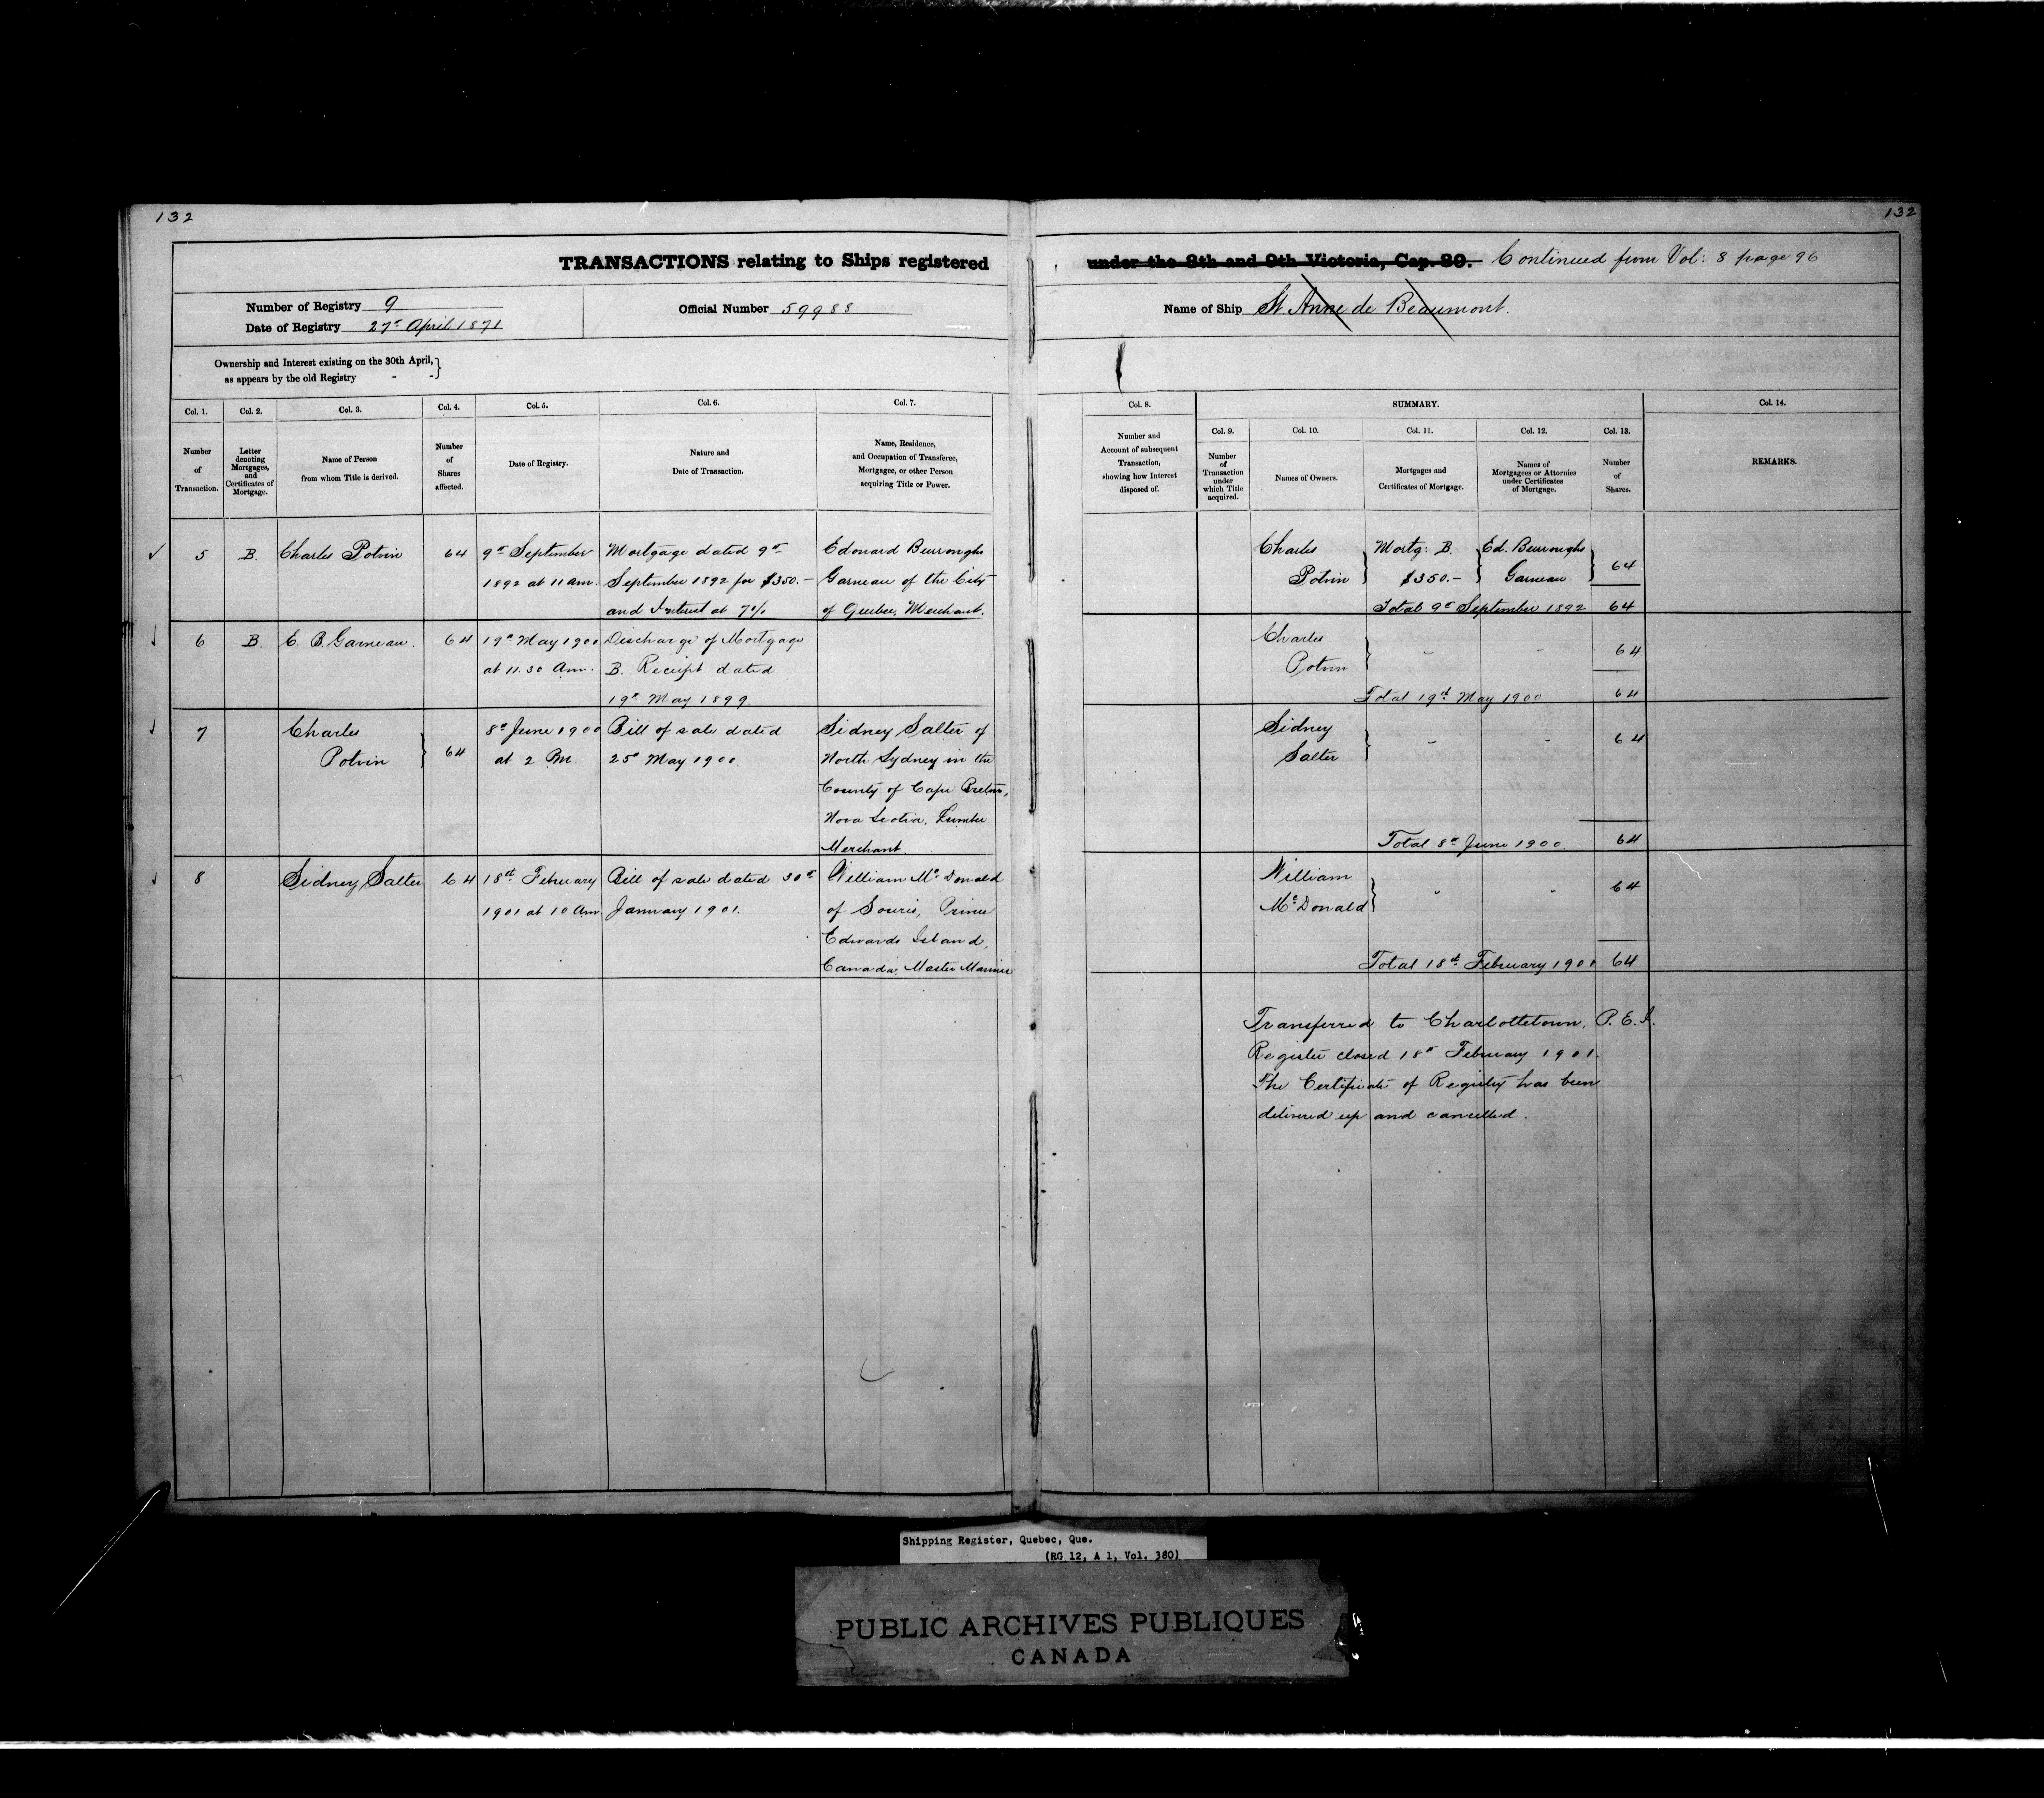 132
132
TRANSACTIONS relating to Ships registered under the 8th and 9th Victoria, Cap. 89. Continued from Vol: 8 page 96
Number of Registry 9
Date of Registry 27th April 1871
Official Number 59988
Name of Ship St Anne de Beaumont.
Ownership and Interest existing on the 30th April,
as appears by the old Registry - -
Col. 1.
Number
of
Transaction.
Col. 2.
Letter
denoting
Mortgages,
and
Certificates of
Mortgage.
Col. 3.
Name of Person
from whom Title is derived.
Col. 4.
Number
of
Shares
affected.
Col. 5.
Date of Registry.
Col. 6.
Nature and
Date of Transaction.
Col. 7.
Name, Residence,
and Occupation of Transferee,
Mortgagee, or other Person
acquiring Title or Power.
Col. 8.
Number and
Account of subsequent
Transaction,
showing how Interest
disposed of.
SUMMARY.
Col. 9.
Number
of
Transaction
under
which Title
acquired.
Col. 10.
Names of Owners.
Col. 11.
Mortgages and
Certificates of Mortgage.
Col. 12.
Names of
Mortgagees or Attornies
under Certificates
of Mortgage.
Col. 13.
Number
of
Shares.
Col. 14.
REMARKS.
5
B.
Charles Potvin
64
9th September
1892 at 11 am.
Mortgage dated 9th
September 1892 for $350.-
and Interest at 7%
Edouard Burroughs
Garneau of the City
of Quebec, Merchant.
Charles
Potvin
Mortg: B.
$350.-
Ed. Burroughs
Garneau
64
Total 9th September 1892 64
6
B.
E. B. Garneau.
64
19th May 1900
at 11.30 Am.
Discharge of Mortgage
B. Receipt dated
19th May 1899
Charles
Potvin
" "
64
Total 19th May 1900 64
7
Charles
Potvin
64
8th June 1900
at 2 Pm.
Bill of sale dated
25th May 1900.
Sidney Salter of
North Sydney in the
County of Cape Breton,
Nova Scotia, Lumber
Merchant.
Sidney
Salter
" "
64
Total 8th June 1900. 64
8
Sidney Salter
64
18th February
1901 at 10 Am
Bill of sale dated 30th
January 1901.
William McDonald
of Souris, Prince
Edwards Island,
Canada, Master Mariner
William
McDonald
" "
64
Total 18th February 1901 64
Transferred to Charlottetown, P.E.I.
Register closed 18th February 1901.
The Certificate of Registry has been
delivered up and cancelled.
Shipping Register, Quebec, Que.
(RG 12, A 1, Vol. 380)
PUBLIC ARCHIVES PUBLIQUES
CANADA